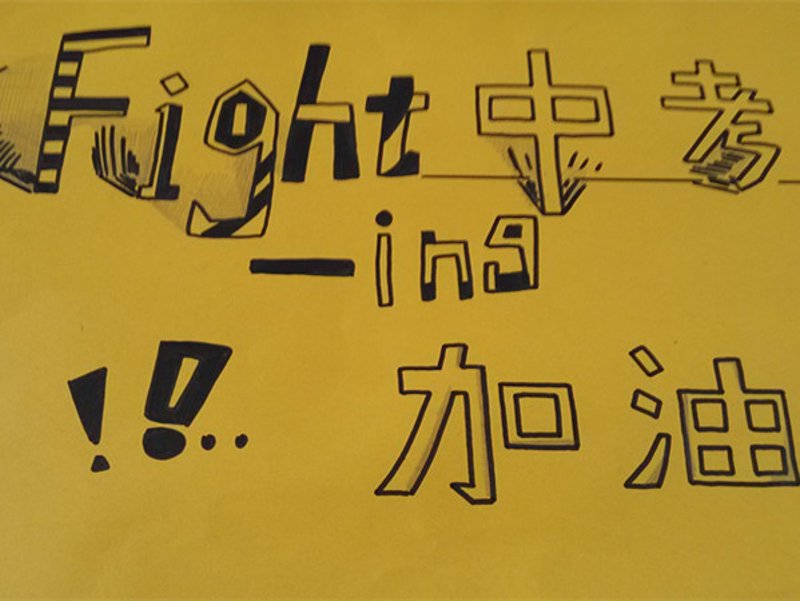 Fight中考
—ing
!!..加油